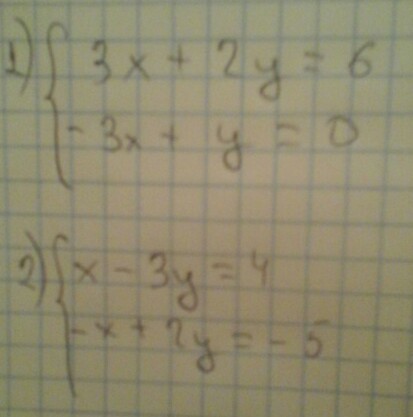 1) { 3x + 2y = 6
- 3x + y = 0
2) { x - 3y = 4
- x + 2y = - 5